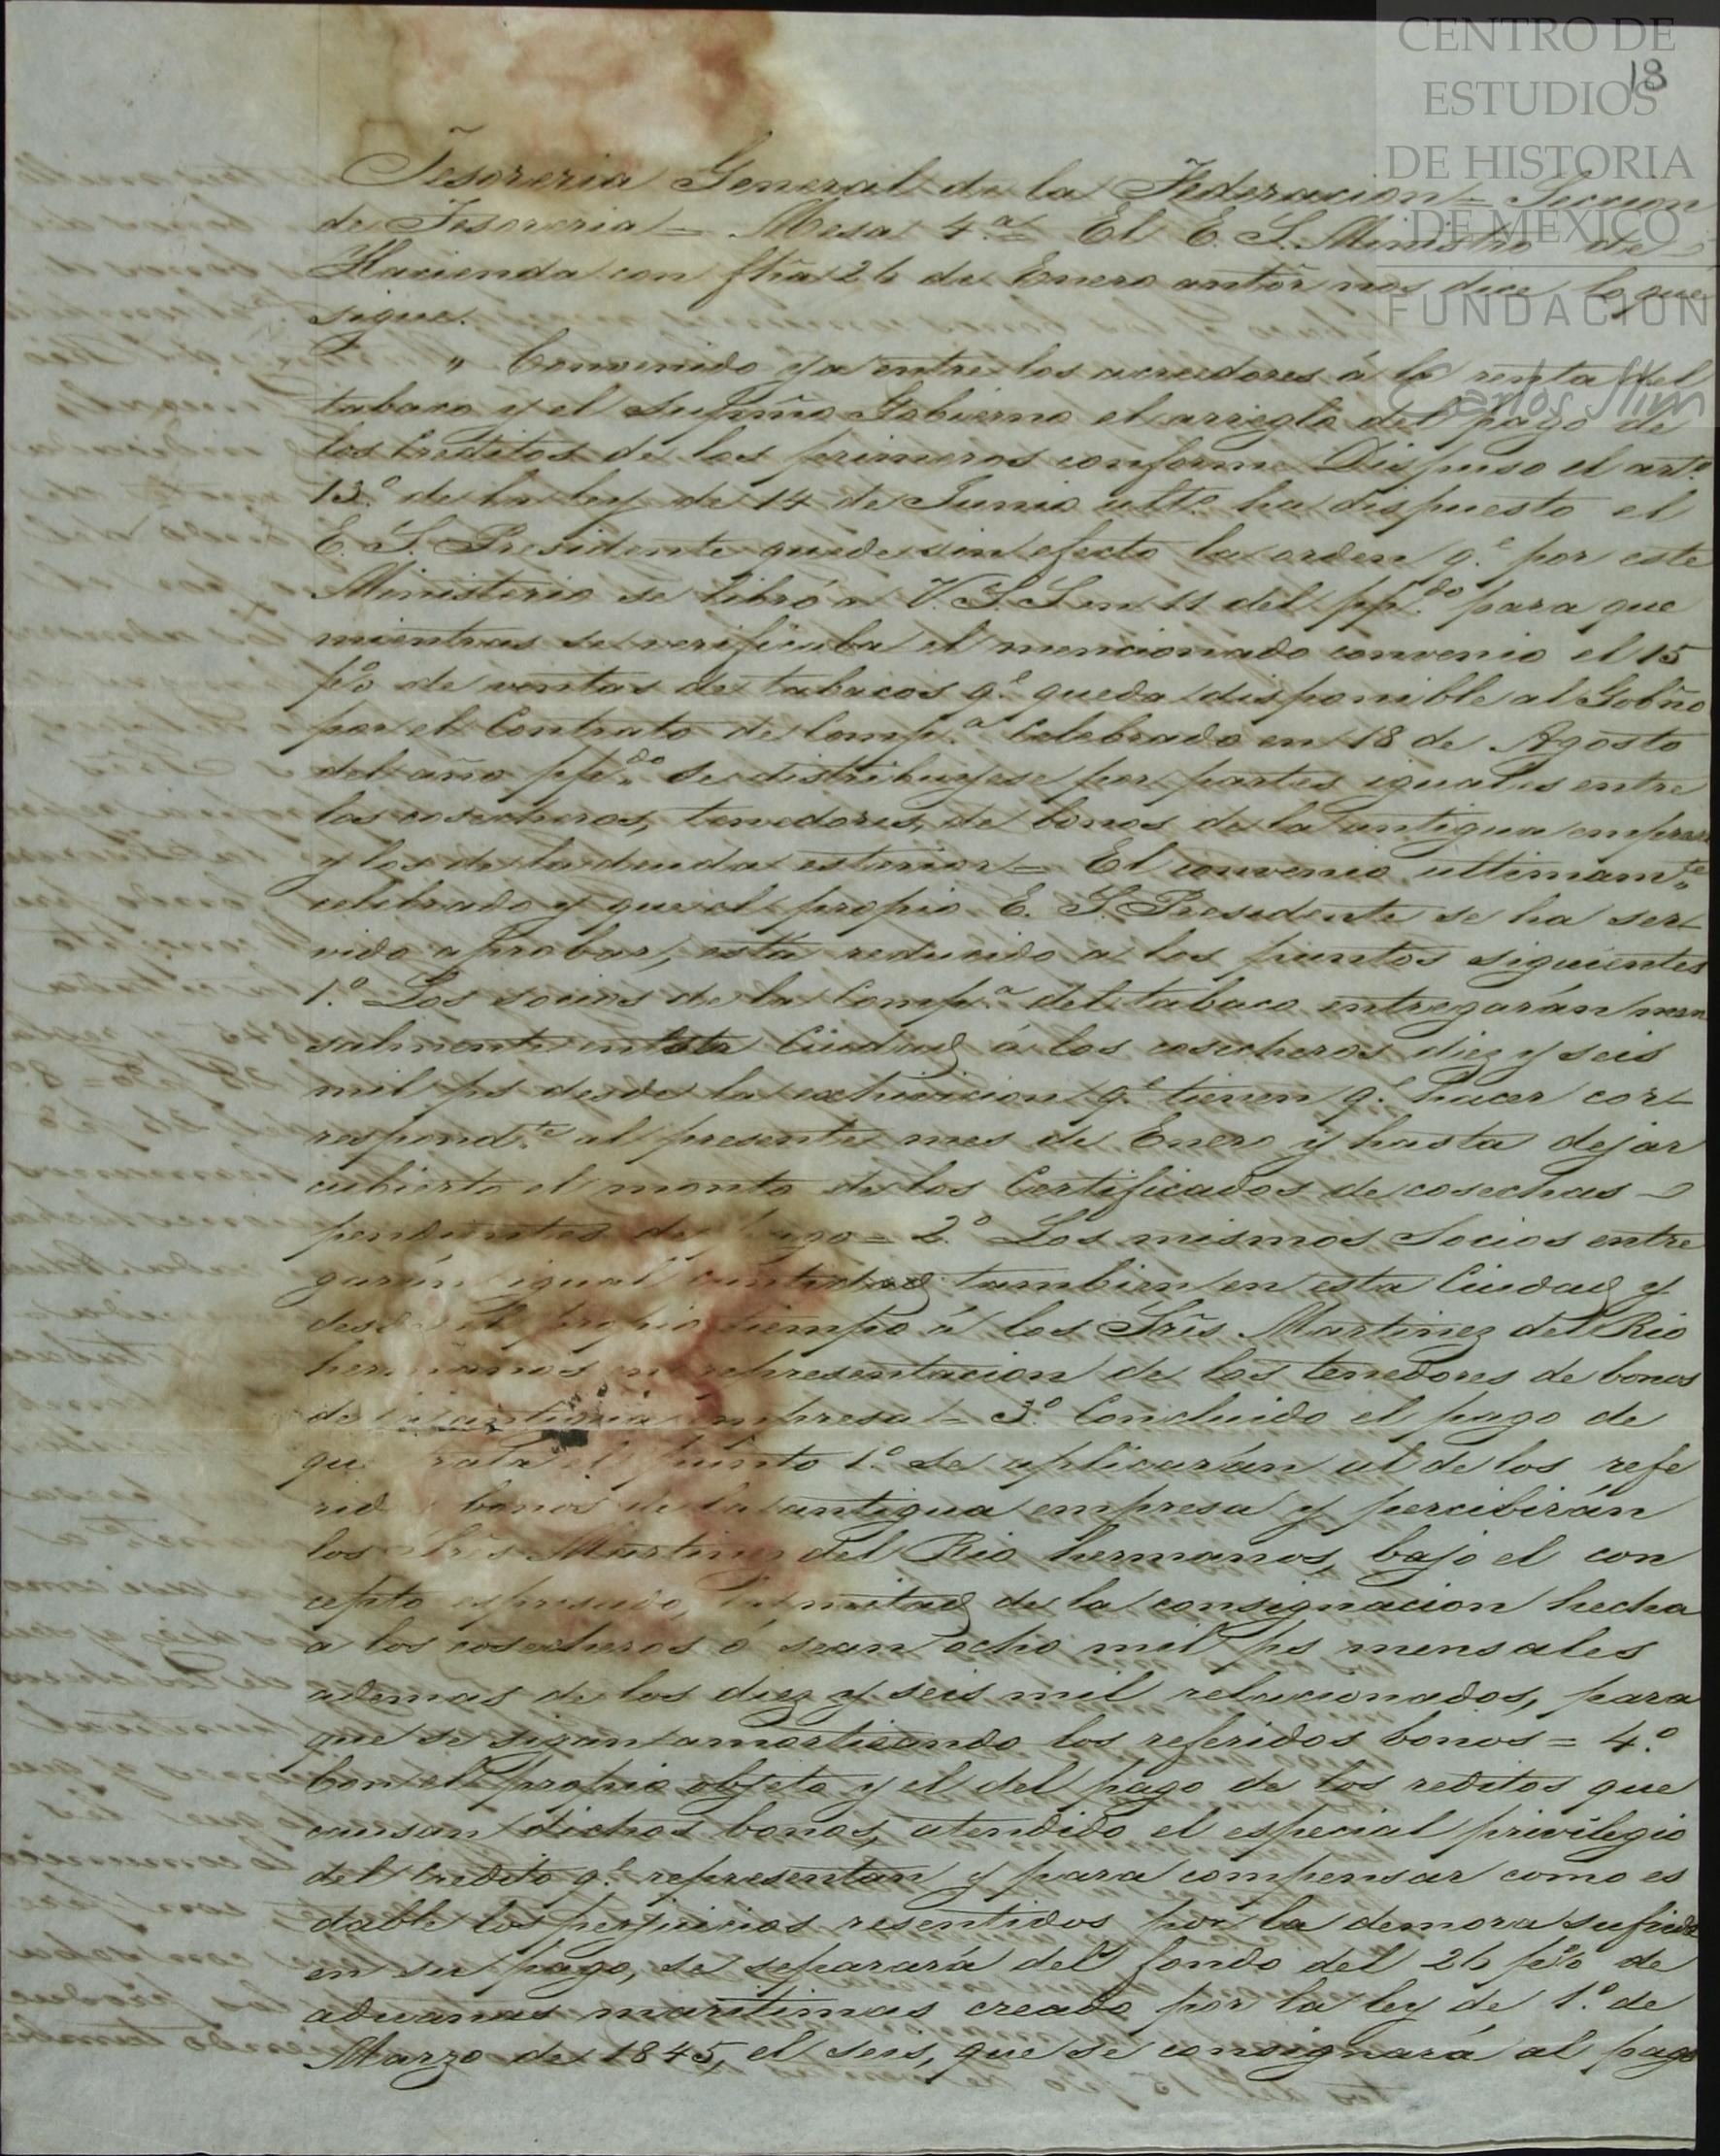 CENTRO DE
ESTUDIOS
DE HISTORIA
DE MEXICO
FUNDACION
Carlos Slim
18
Tesoreria General de la Federacion = Seccion
de Tesoreria = Mesa 4.a = El E. S. Ministro de
Hacienda con fha 26 de Enero antõr nos dice lo que
sigue.
" Convenido ya entre los acreedores á la renta del
tabaco y el Supmo Gobierno el arreglo del pago de
los creditos de los primeros conforme Dispuso el art.o
13.o de la ley de 14 de Junio ult.o ha dispuesto el
E. S. Presidente quede sin efecto la orden q.e por este
Ministerio se libró a V.S.S. en 11 del pp.do para que
mientras se verificaba el mencionado convenio el 15
p%o de ventas de tabacos q.e queda disponible al Gobño
por el Contrato de Comp.a Celebrado en 18 de Agosto
del año pp.do se distribuyese por partes iguales entre
los cosecheros, tenedores, de bonos de la antigua empresa
y los de la deuda esterior = El convenio ultimam.te
celebrado y que el propio E. S. Presidente se ha ser-
vido aprobar, está reducido a los puntos siguientes
1.o Los socios de la Comp.a del tabaco entregarán men
salmente en esta Ciudad á los cosecheros diez y seis
mil ps desde la exhivicion q.e tienen q.e hacer cor-
respond.te al presente mes de Enero y hasta dejar
cubierto el monto de los Certificados de cosechas
pendientes de pago = 2.o Los mismos Socios entre
garán igual cantidad tambien en esta Ciudad y
desde el propio tiempo á los Srẽs Martinez del Rio
hermanos en representacion de los tenedores de bonos
de la antigua empresa = 3.o Concluido el pago de
que trata el punto 1.o se aplicarán al de los refe
ridos bonos de la antigua empresa y percibirán
los Srẽs Martinez del Rio hermanos, bajo el con
cepto espresado, la mitad de la consignacion hecha
a los cosecheros ó sean ocho mil ps mensales
ademas de los diez y seis mil relacionados, para
que se sigan amortisando los referidos bonos = 4.o
Con el propio objeto y el del pago de los reditos que
causan dichos bonos, atendido el especial privilegio
del credito q.e representan y para compensar como es
dable los perjuicios resentidos por la demora sufrida
en su pago, se separará del fondo del 26 p%o de
aduanas maritimas creado por la ley de 1.o de
Marzo de 1845, el seis, que se consignará al pago